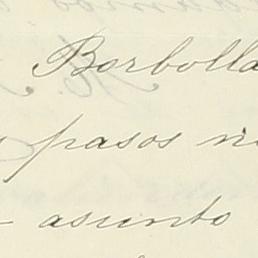 Borbolla
pasos
asunto